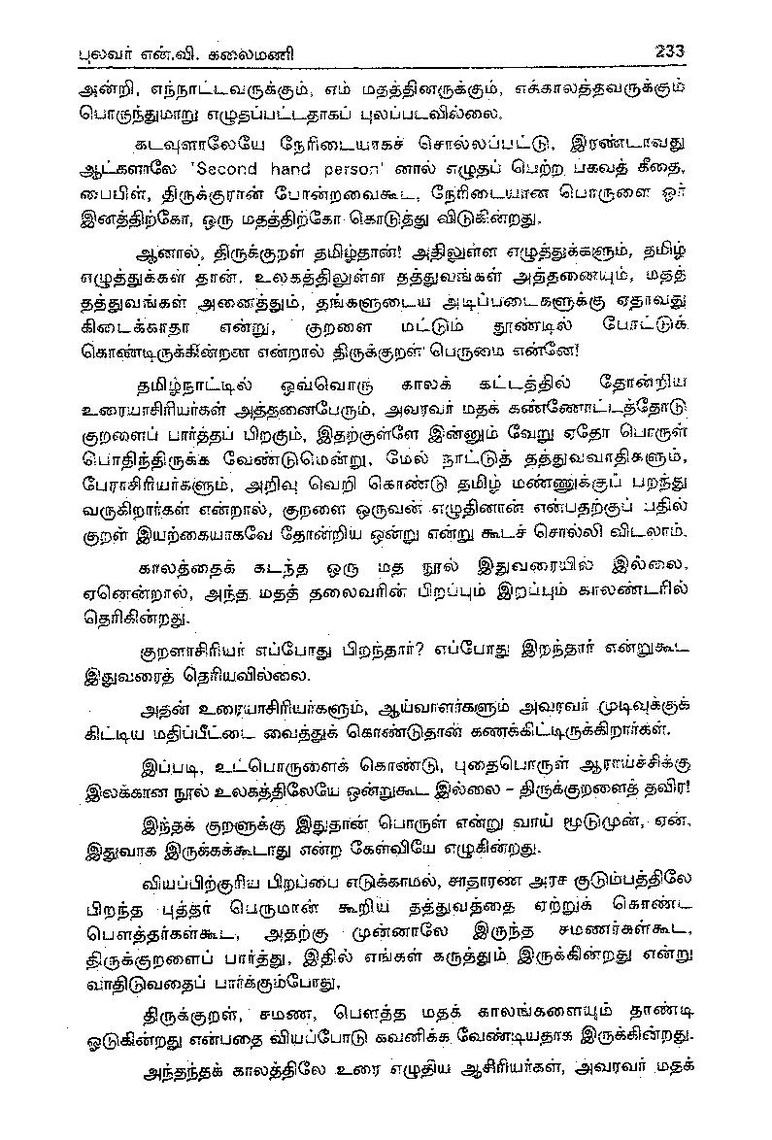 புலவர் என்.வி. கலைமணி 233
அன்றி, எந்நாட்டவருக்கும், எம் மதத்தினருக்கும், எக்காலத்தவருக்கும்
பொருந்துமாறு எழுதப்பட்டதாகப் புலப்படவில்லை.
கடவுளாலேயே நேரிடையாகச் சொல்லப்பட்டு, இரண்டாவது
ஆட்களாலே 'Second hand person' னால் எழுதப் பெற்ற பகவத் கீதை,
பைபிள், திருக்குரான் போன்றவைகூட, நேரிடையான பொருளை ஓர்
இனத்திற்கோ, ஒரு மதத்திற்கோ கொடுத்து விடுகின்றது.
ஆனால், திருக்குறள் தமிழ்தான்! அதிலுள்ள எழுத்துக்களும், தமிழ்
எழுத்துக்கள் தான். உலகத்திலுள்ள தத்துவங்கள் அத்தனையும், மதத்
தத்துவங்கள் அனைத்தும், தங்களுடைய அடிப்படைகளுக்கு ஏதாவது
கிடைக்காதா என்று, குறளை மட்டும் தூண்டில் போட்டுக்
கொண்டிருக்கின்றன என்றால் திருக்குறள் பெருமை என்னே!
தமிழ்நாட்டில் ஒவ்வொரு காலக் கட்டத்தில் தோன்றிய
உரையாசிரியர்கள் அத்தனைபேரும், அவரவர் மதக் கண்ணோட்டத்தோடு
குறளைப் பார்த்தப் பிறகும், இதற்குள்ளே இன்னும் வேறு ஏதோ பொருள்
பொதிந்திருக்க வேண்டுமென்று, மேல் நாட்டுத் தத்துவவாதிகளும்,
பேராசிரியர்களும், அறிவு வெறி கொண்டு தமிழ் மண்ணுக்குப் பறந்து
வருகிறார்கள் என்றால், குறளை ஒருவன் எழுதினான் என்பதற்குப் பதில்
குறள் இயற்கையாகவே தோன்றிய ஒன்று என்று கூடச் சொல்லி விடலாம்.
காலத்தைக் கடந்த ஒரு மத நூல் இதுவரையில் இல்லை.
ஏனென்றால், அந்த மதத் தலைவரின் பிறப்பும் இறப்பும் காலண்டரில்
தெரிகின்றது.
குறளாசிரியர் எப்போது பிறந்தார்? எப்போது இறந்தார் என்றுகூட
இதுவரைத் தெரியவில்லை.
அதன் உரையாசிரியர்களும், ஆய்வாளர்களும் அவரவர் முடிவுக்குக்
கிட்டிய மதிப்பீட்டை வைத்துக் கொண்டுதான் கணக்கிட்டிருக்கிறார்கள்.
இப்படி, உட்பொருளைக் கொண்டு, புதைபொருள் ஆராய்ச்சிக்கு
இலக்கான நூல் உலகத்திலேயே ஒன்றுகூட இல்லை – திருக்குறளைத் தவிர!
இந்தக் குறளுக்கு இதுதான் பொருள் என்று வாய் மூடுமுன், ஏன்,
இதுவாக இருக்கக்கூடாது என்ற கேள்வியே எழுகின்றது.
வியப்பிற்குரிய பிறப்பை எடுக்காமல், சாதாரண அரச குடும்பத்திலே
பிறந்த புத்தர் பெருமான் கூறிய தத்துவத்தை ஏற்றுக் கொண்ட
பௌத்தர்கள்கூட, அதற்கு முன்னாலே இருந்த சமணர்கள்கூட,
திருக்குறளைப் பார்த்து, இதில் எங்கள் கருத்தும் இருக்கின்றது என்று
வாதிடுவதைப் பார்க்கும்போது,
திருக்குறள், சமண, பௌத்த மதக் காலங்களையும் தாண்டி
ஓடுகின்றது என்பதை வியப்போடு கவனிக்க வேண்டியதாக இருக்கின்றது.
அந்தந்தக் காலத்திலே உரை எழுதிய ஆசிரியர்கள், அவரவர் மதக்